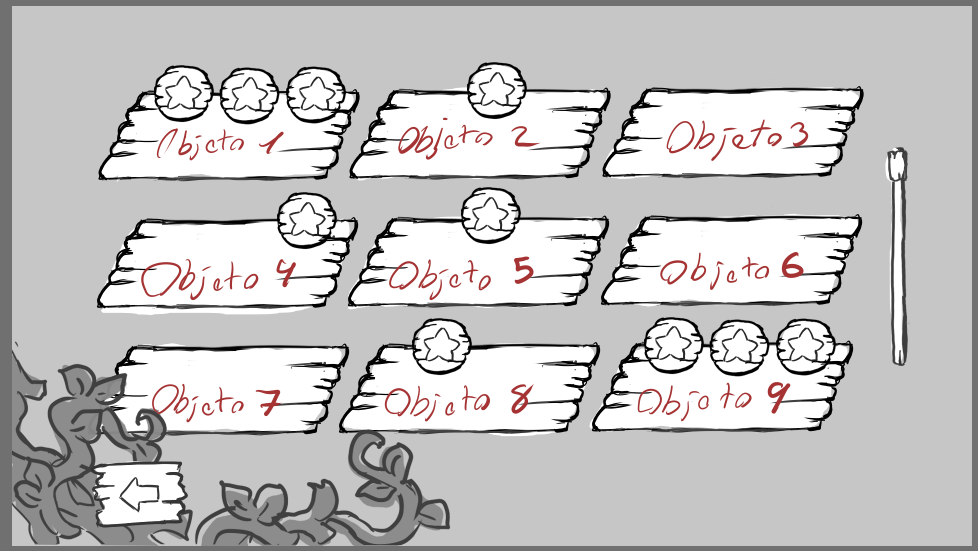 Objeto 1
Objeto 2
Objeto 3
Objeto 4
Objeto 5
Objeto 6
Objeto 7
Objeto 8
Objeto 9